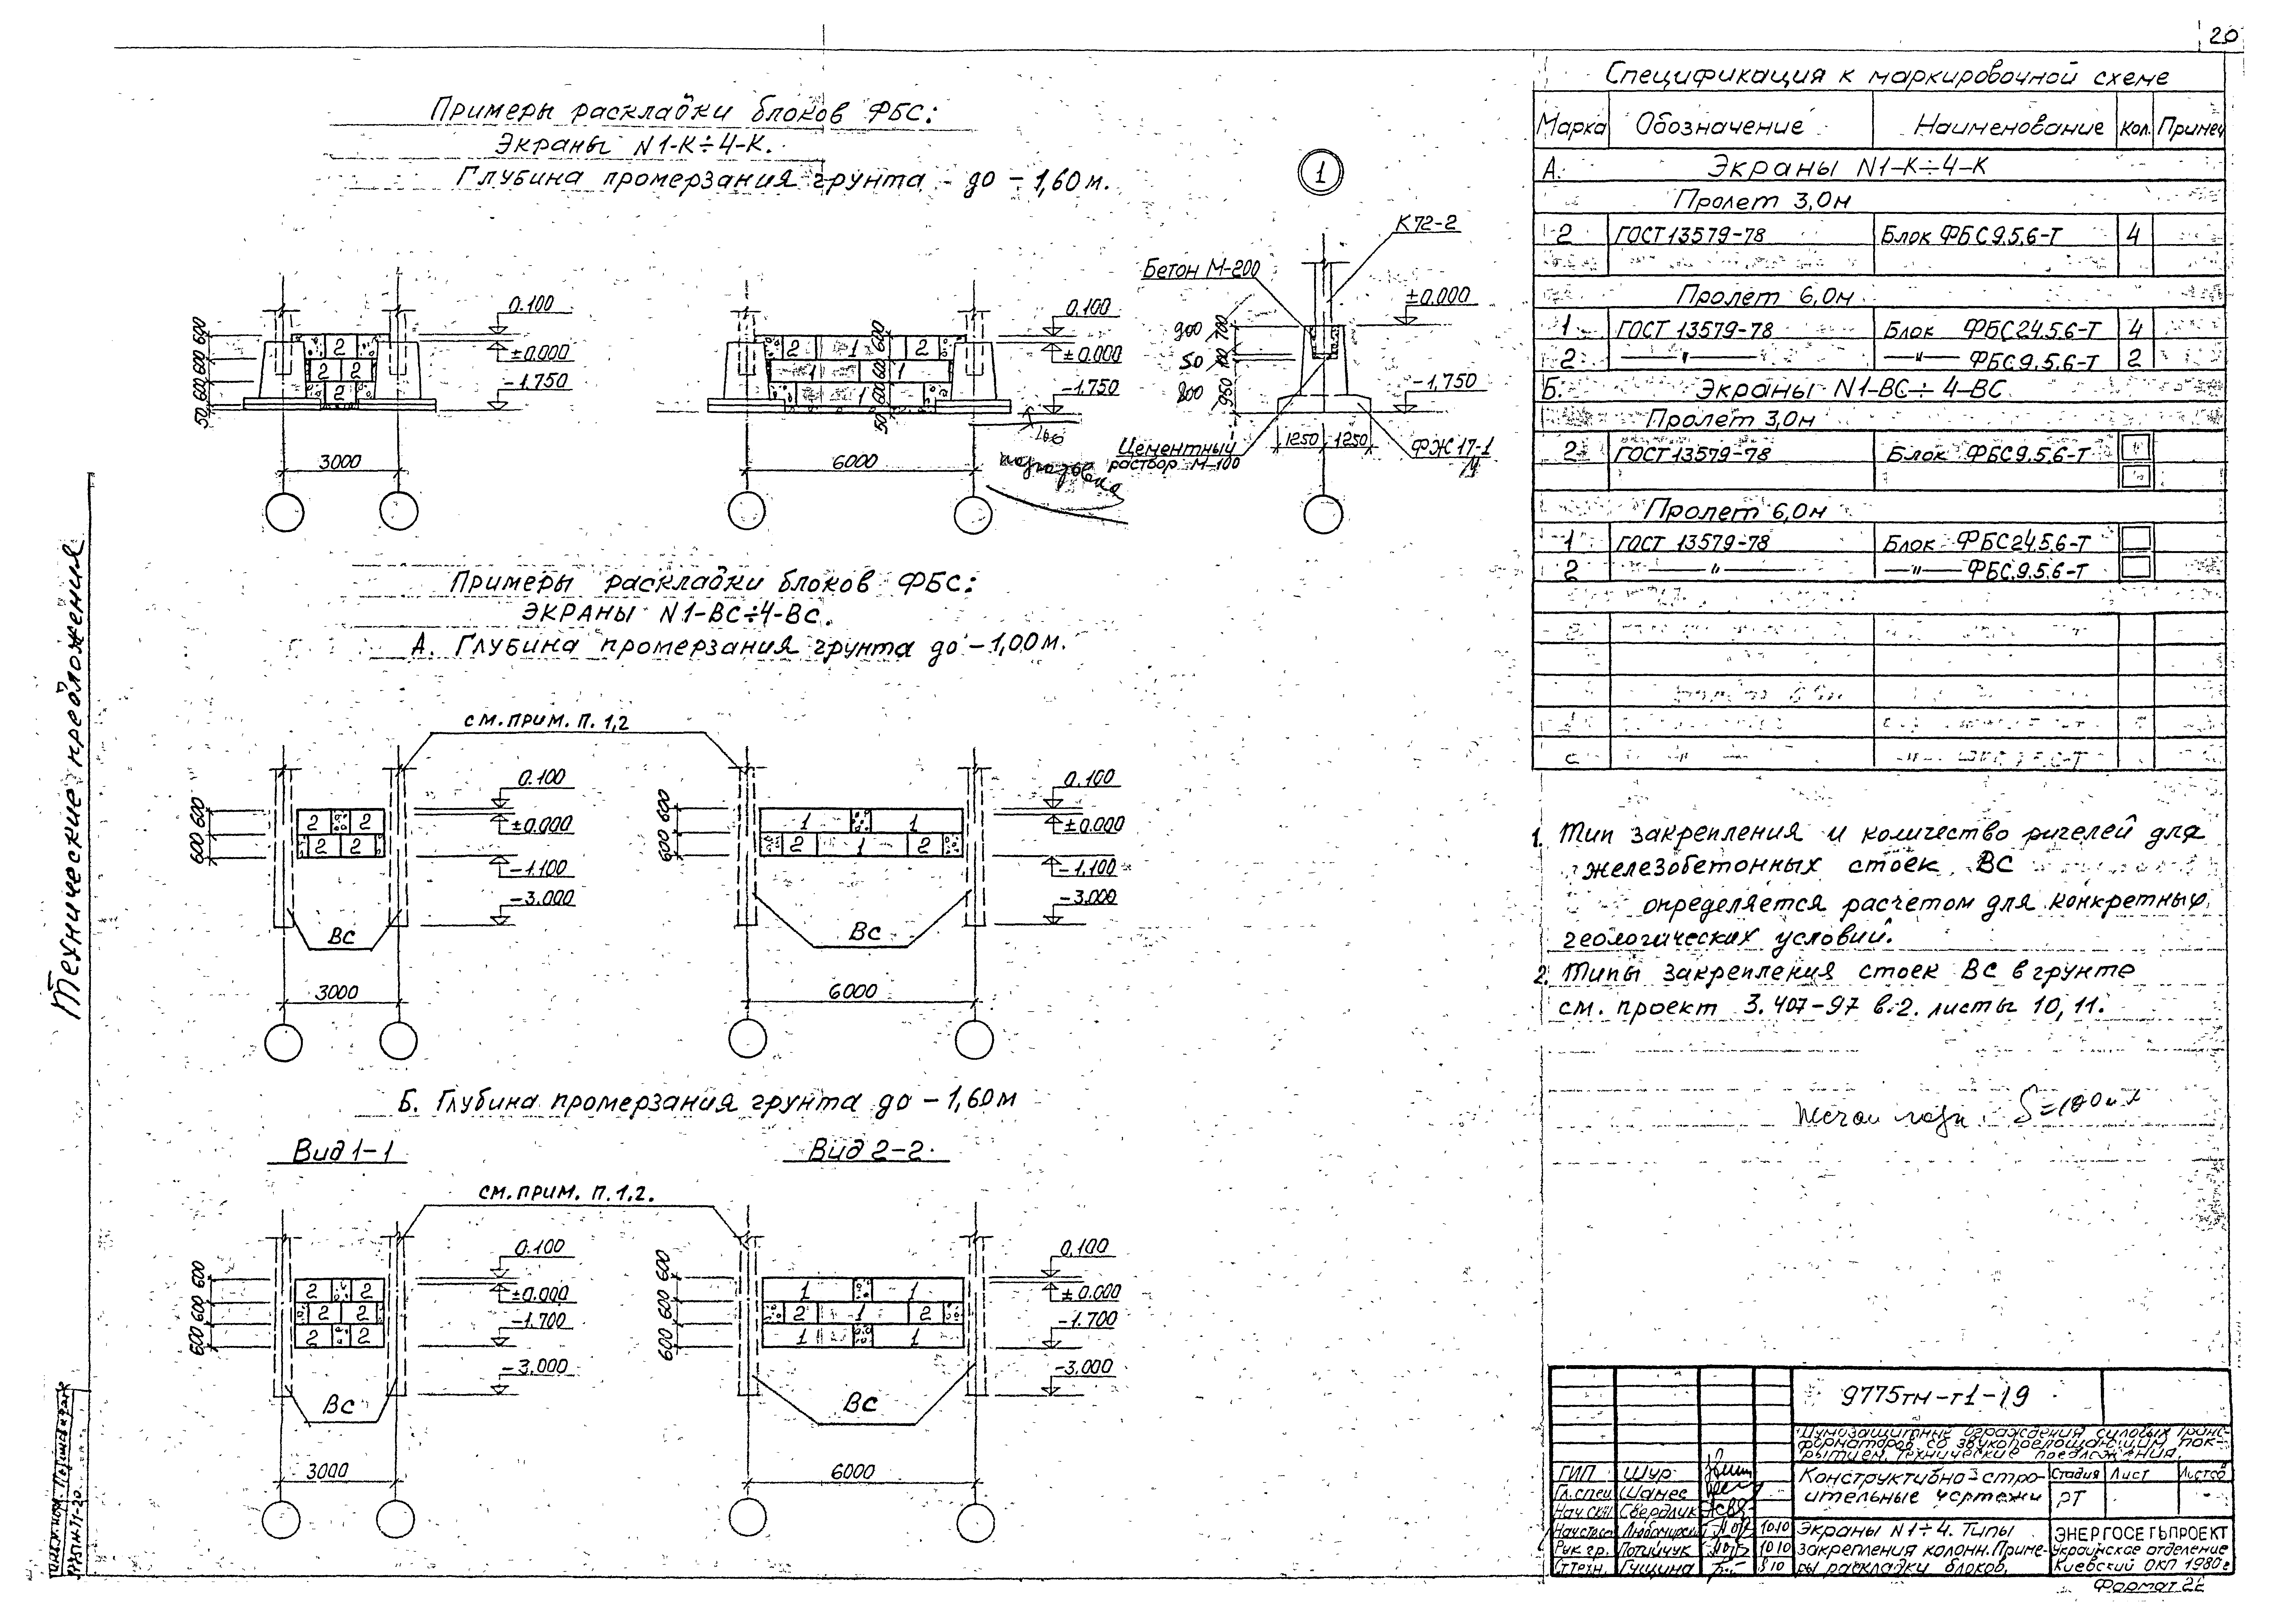 20
Примеры раскладки блоков ФБС:
Экраны N1-К÷4-К.
Глубина промерзания грунта - до -1,60м.
1
К72-2
Бетон М-200
0.100
±0.000
-1.750
600 600 600
50
2
2 2
2
3000
0.100
±0.000
-1.750
2 1 2
1 1
1
600 600 600
50
6000
±0.000
-1.750
900 700
50
800 950
1250 1250
Цементный
раствор М-100
ФЖ 17-1
Примеры раскладки блоков ФБС:
ЭКРАНЫ N1-ВС÷4-ВС.
А. Глубина промерзания грунта до -1,00м.
см. прим. п. 1,2
600 600
2 2
2 2
0.100
±0.000
-1.100
-3.000
ВС
3000
600 600
1 1
2 1 2
0.100
±0.000
-1.100
-3.000
ВС
6000
Б. Глубина промерзания грунта до -1,60м
Вид 1-1
Вид 2-2
см. прим. п. 1.2.
600 600 600
2 2
2 2
2 2
0.100
±0.000
-1.700
-3.000
ВС
3000
600 600 600
1 1
2 1 2
1 1
0.100
±0.000
-1.700
-3.000
ВС
6000
Технические предложения
Спецификация к маркировочной схеме
Марка Обозначение Наименование Кол. Примеч
А. Экраны N1-К÷4-К
Пролет 3,0м
2 ГОСТ 13579-78 Блок ФБС9.5.6-Т 4
Пролет 6,0м
1 ГОСТ 13579-78 Блок ФБС24.5.6-Т 4
2 —"— —"— ФБС9.5.6-Т 2
Б. Экраны N1-ВС÷4-ВС
Пролет 3,0м
2 ГОСТ 13579-78 Блок ФБС9.5.6-Т
Пролет 6,0м
1 ГОСТ 13579-78 Блок ФБС24.5.6-Т
2 —"— —"— ФБС.9.5.6-Т
1. Тип закрепления и количество ригелей для
железобетонных стоек ВС
определяется расчетом для конкретных
геологических условий.
2. Типы закрепления стоек ВС в грунте
см. проект 3.407-97 в.2. листы 10, 11.
9775тм-т1-19
Шумозащитные ограждения силовых транс-
форматоров со звукопоглощающим пок-
рытием. Технические предложения.
ГИП Шур
Гл.спец Шанес
Нач.СКО Свердлик
Рук гр. Потийчук 10 10
Ст техн. Гущина 8 10
Конструктивно-стро-
ительные чертежи
Стадия Лист Листов
РТ
Экраны N1÷4. Типы
закрепления колонн. Приме-
ры раскладки блоков.
ЭНЕРГОСЕТЬПРОЕКТ
Украинское отделение
Киевский ОКП 1980г
Формат 22